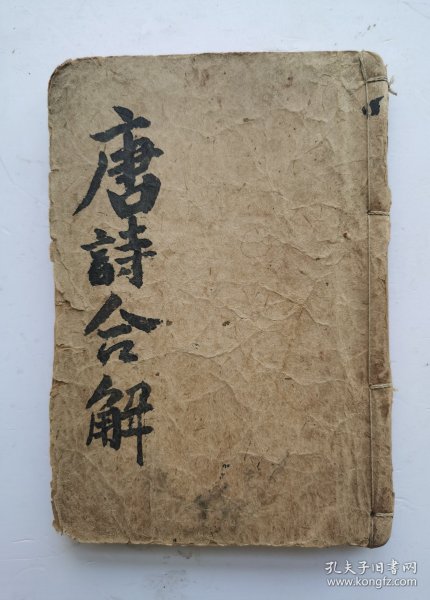 唐詩合解
孔夫子旧书网
www.kongfz.com